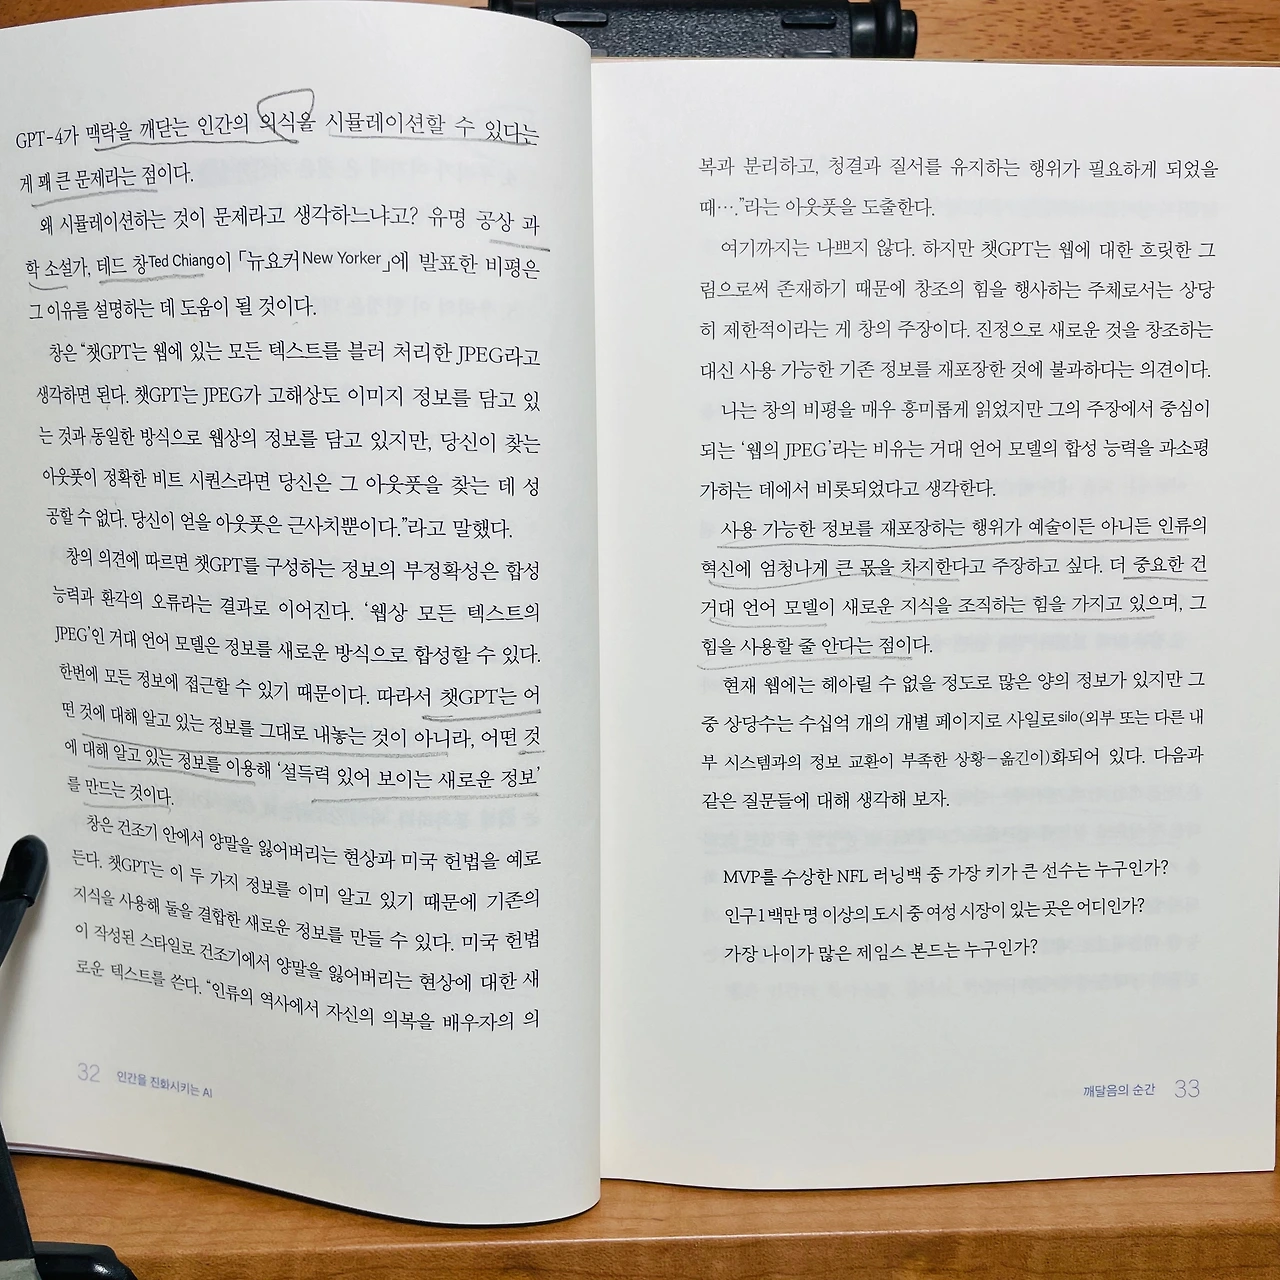 GPT-4가 맥락을 깨닫는 인간의 의식을 시뮬레이션할 수 있다는
게 꽤 큰 문제라는 점이다.
왜 시뮬레이션하는 것이 문제라고 생각하느냐고? 유명 공상 과
학 소설가, 테드 창Ted Chiang이 「뉴요커New Yorker」에 발표한 비평은
그 이유를 설명하는 데 도움이 될 것이다.
창은 “챗GPT는 웹에 있는 모든 텍스트를 불러 처리한 JPEG라고
생각하면 된다. 챗GPT는 JPEG가 고해상도 이미지 정보를 담고 있
는 것과 동일한 방식으로 웹상의 정보를 담고 있지만, 당신이 찾는
아웃풋이 정확한 비트 시퀀스라면 당신은 그 아웃풋을 찾는 데 성
공할 수 없다. 당신이 얻을 아웃풋은 근사치뿐이다.”라고 말했다.
창의 의견에 따르면 챗GPT를 구성하는 정보의 부정확성은 합성
능력과 환각의 오류라는 결과로 이어진다. ‘웹상 모든 텍스트의
JPEG’인 거대 언어 모델은 정보를 새로운 방식으로 합성할 수 있다.
한번에 모든 정보에 접근할 수 있기 때문이다. 따라서 챗GPT는 어
떤 것에 대해 알고 있는 정보를 그대로 내놓는 것이 아니라, 어떤 것
에 대해 알고 있는 정보를 이용해 ‘설득력 있어 보이는 새로운 정보’
를 만드는 것이다.
창은 건조기 안에서 양말을 잃어버리는 현상과 미국 헌법을 예로
든다. 챗GPT는 이 두 가지 정보를 이미 알고 있기 때문에 기존의
지식을 사용해 둘을 결합한 새로운 정보를 만들 수 있다. 미국 헌법
이 작성된 스타일로 건조기에서 양말을 잃어버리는 현상에 대한 새
로운 텍스트를 쓴다. “인류의 역사에서 자신의 의복을 배우자의 의
32 인간을 진화시키는 AI
복과 분리하고, 청결과 질서를 유지하는 행위가 필요하게 되었을
때….”라는 아웃풋을 도출한다.
여기까지는 나쁘지 않다. 하지만 챗GPT는 웹에 대한 흐릿한 그
림으로써 존재하기 때문에 창조의 힘을 행사하는 주체로서는 상당
히 제한적이라는 게 창의 주장이다. 진정으로 새로운 것을 창조하는
대신 사용 가능한 기존 정보를 재포장한 것에 불과하다는 의견이다.
나는 창의 비평을 매우 흥미롭게 읽었지만 그의 주장에서 중심이
되는 ‘웹의 JPEG’라는 비유는 거대 언어 모델의 합성 능력을 과소평
가하는 데에서 비롯되었다고 생각한다.
사용 가능한 정보를 재포장하는 행위가 예술이든 아니든 인류의
혁신에 엄청나게 큰 몫을 차지한다고 주장하고 싶다. 더 중요한 건
거대 언어 모델이 새로운 지식을 조직하는 힘을 가지고 있으며, 그
힘을 사용할 줄 안다는 점이다.
현재 웹에는 헤아릴 수 없을 정도로 많은 양의 정보가 있지만 그
중 상당수는 수십억 개의 개별 페이지로 사일로silo(외부 또는 다른 내
부 시스템과의 정보 교환이 부족한 상황–옮긴이)화되어 있다. 다음과
같은 질문들에 대해 생각해 보자.
MVP를 수상한 NFL 러닝백 중 가장 키가 큰 선수는 누구인가?
인구 1백만 명 이상의 도시 중 여성 시장이 있는 곳은 어디인가?
가장 나이가 많은 제임스 본드는 누구인가?
깨달음의 순간 33